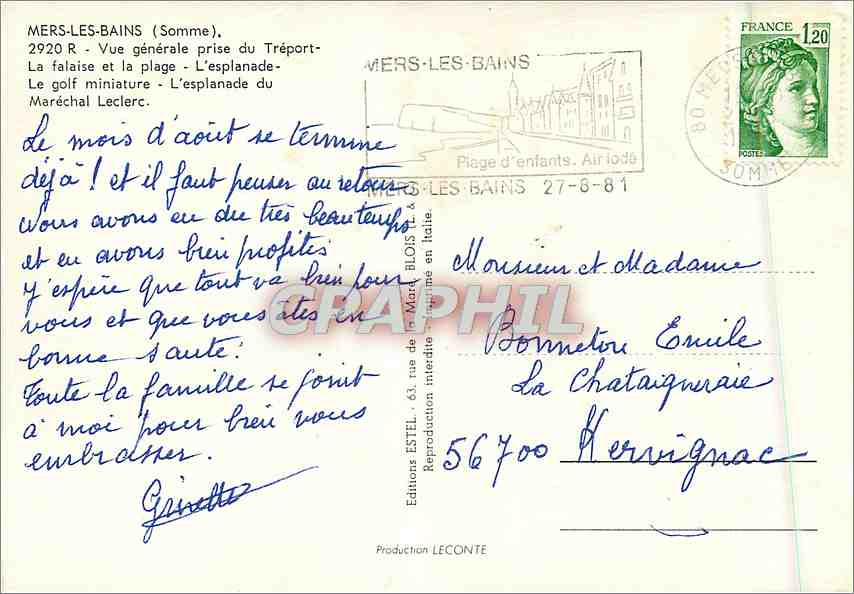 MERS-LES-BAINS (Somme).
2920 R - Vue générale prise du Tréport-
La falaise et la plage - L'esplanade-
Le golf miniature - L'esplanade du
Maréchal Leclerc.
Le mois d'août se termine
déjà! et il faut penser au retour
Nous avons eu du très beau temps
et en avons bien profités
J'espère que tout va bien pour
vous et que vous êtes en
bonne santé.
Toute la famille se joint
à moi pour bien vous
embrasser.
Ginette
MERS-LES-BAINS
Plage d'enfants. Air iodé
MERS-LES-BAINS 27-8-81
80 MERS
SOMME
FRANCE 1,20
POSTES
Editions ESTEL - 63, rue de la Mare, BLOIS
Reproduction interdite - Imprimé en Italie.
CPAPHIL
Monsieur et Madame
Bonnetou Emile
La Chataigneraie
56700 Kervignac
Production LECONTE